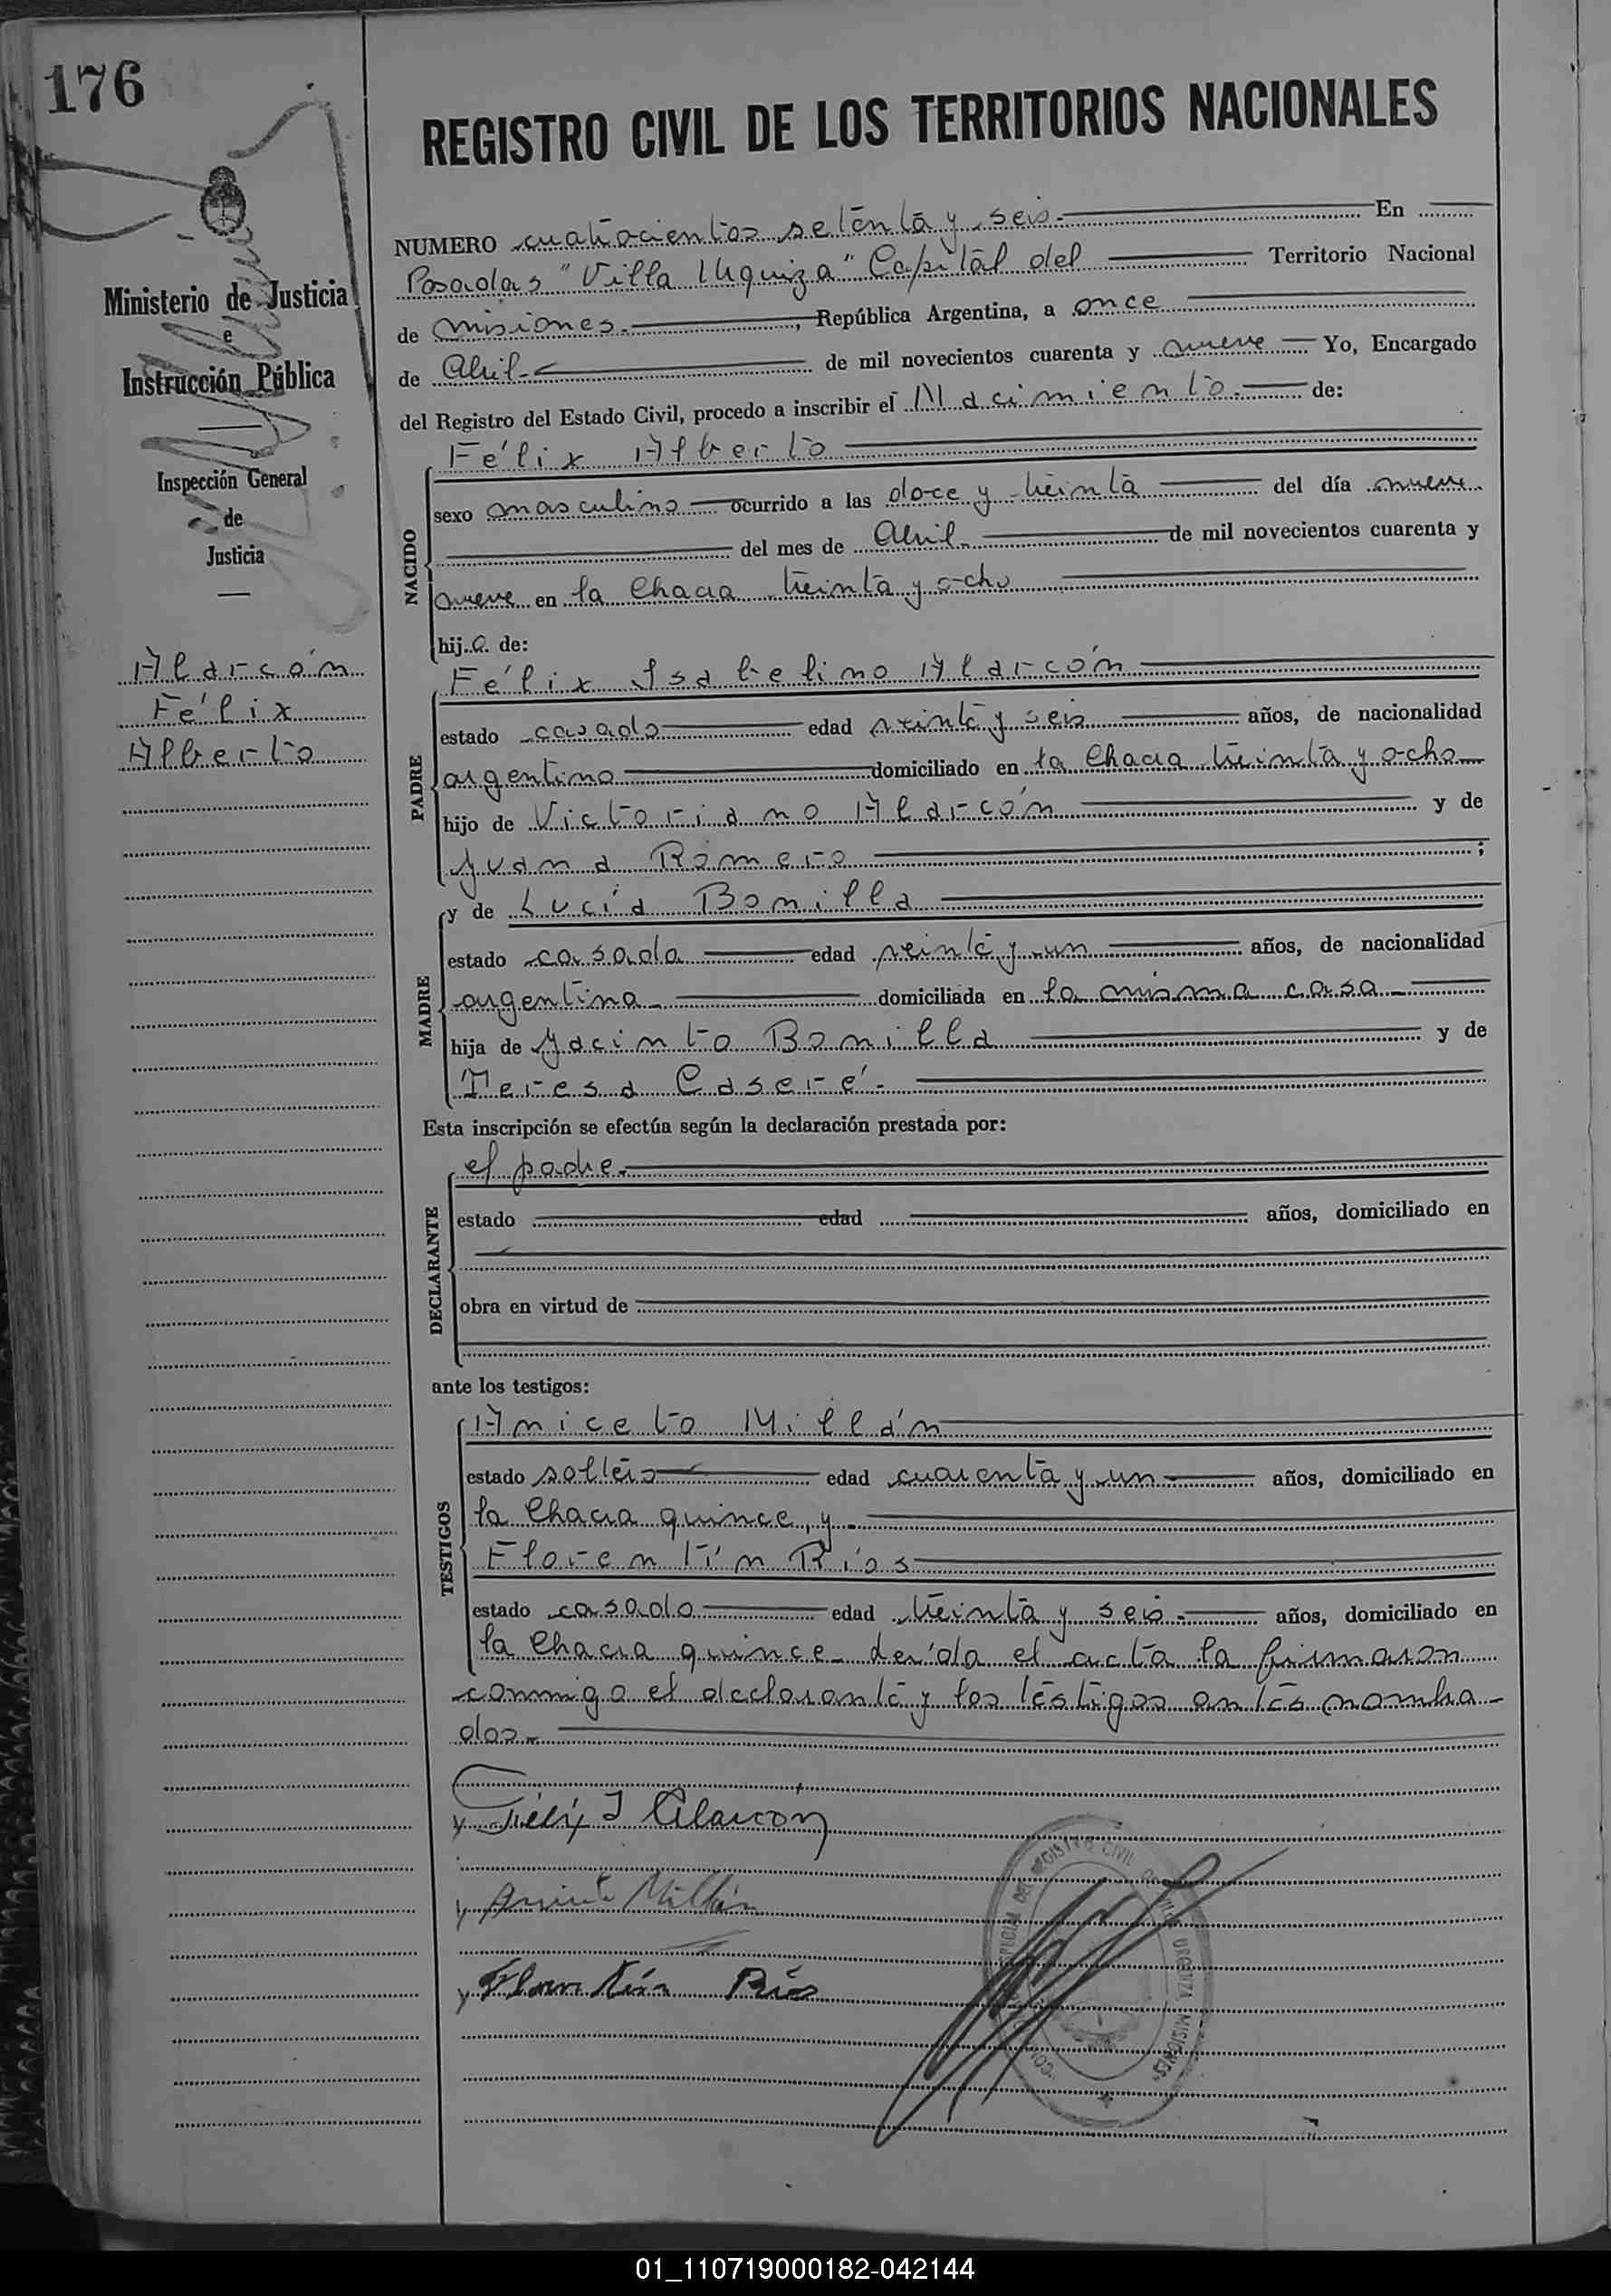 176
REGISTRO CIVIL DE LOS TERRITORIOS NACIONALES
Ministerio de Justicia
e
Instrucción Pública
Inspección General
de
Justicia
Alarcón
Félix
Alberto
NUMERO cuatrocientos setenta y seis.- En
Posadas "Villa Urquiza" Capital del Territorio Nacional
de Misiones.- , República Argentina, a once
de Abril- de mil novecientos cuarenta y nueve Yo, Encargado
del Registro del Estado Civil, procedo a inscribir el Nacimiento.- de:
NACIDO
Félix Alberto
sexo masculino ocurrido a las doce y treinta del día nueve
del mes de Abril- de mil novecientos cuarenta y
nueve en la Chacra treinta y ocho
hijo de:
PADRE
Félix Isabelino Alarcón
estado casado edad veinte y seis años, de nacionalidad
argentino domiciliado en la Chacra treinta y ocho
hijo de Victoriano Alarcón y de
Juana Romero ;
MADRE
y de Lucía Bonilla
estado casada edad veinte y un años, de nacionalidad
argentina domiciliada en la misma casa
hija de Jacinto Bonilla y de
Teresa Caseré.-
Esta inscripción se efectúa según la declaración prestada por:
DECLARANTE
el padre.
estado edad años, domiciliado en
obra en virtud de
ante los testigos:
TESTIGOS
Aniceto Millán
estado soltero edad cuarenta y un años, domiciliado en
la Chacra quince, y
Florentín Ríos
estado casado edad treinta y seis.- años, domiciliado en
la Chacra quince- leída el acta la firmaron
conmigo el declarante y los testigos antes nombra-
dos.-
Félix I Alarcón
Aniceto Millán
Florentín Ríos
REGISTRO CIVIL
URQUIZA MISIONES
01_110719000182-042144